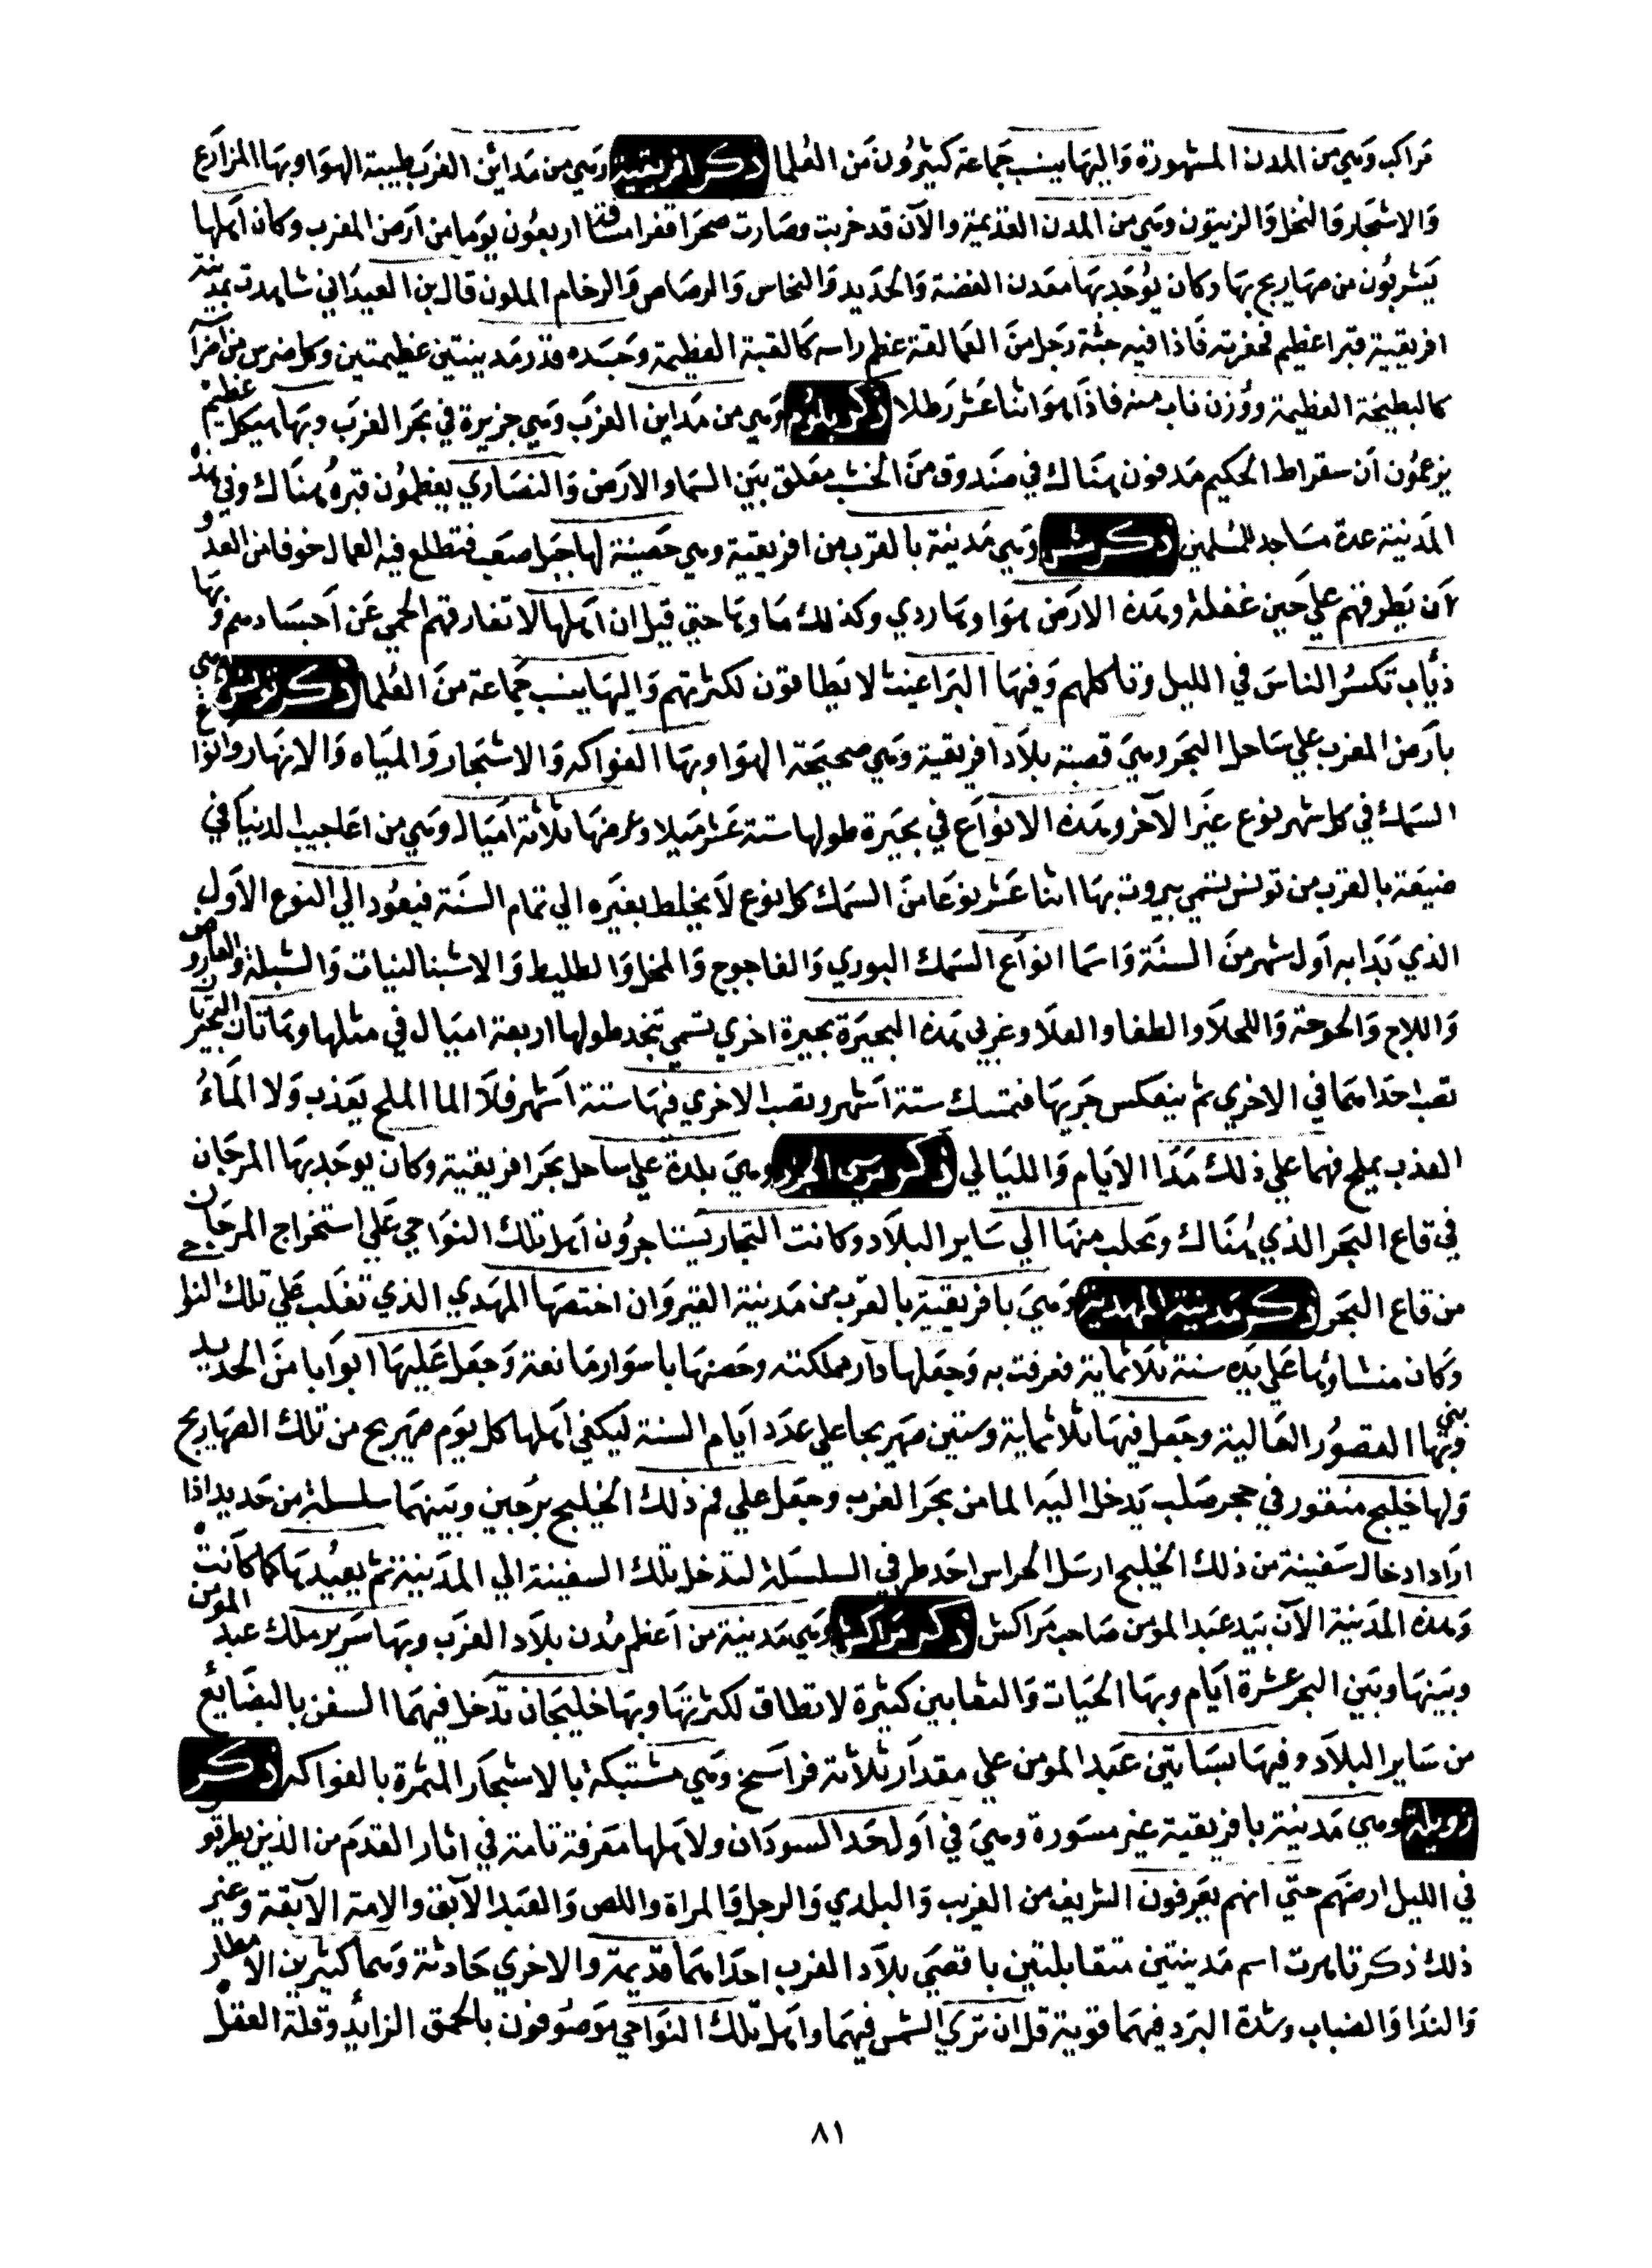 مراكب وهي من المدن المشهورة واليها ينسب جماعة كثيرون من العلما ذكر افريقية وهي من مداين الغرب طيبة الهوا وبها المزارع
والاشجار والنخل والزيتون وهي من المدن القديمة والآن قد خربت وصارت صحرا قفرا مسافة اربعون يوما من ارض المغرب وكان اهلها
يشربون من صهاريج بها وكان يوجد بها معدن الفضة والحديد والنحاس والرصاص والرخام الملون قال بن العبداني شاهدت بمدينة
افريقية قبرا عظيم فحفرته فاذا فيه جثة رجل من العمالقة عظم راسه كالقبة العظيمة وجسده قدر مدينتين عظيمتين وكل ضرس من اضراسه
كالبطيخة العظيمة ووزن ناب منه فاذا هو اثنا عشر رطلا ذكر بلرم وهي من مداين الغرب وهي جزيرة في بحر الغرب وبها هيكل عظيم
يزعمون ان سقراط الحكيم مدفون هناك في صندوق من الخشب معلق بين السما والارض والنصاري يعظمون قبره هناك وفي هذه
المدينة عدة مساجد للمسلمين ذكر وهي مدينة بالقرب من افريقية وهي حصينة لها جبل صعب فتطلع فيه العمال خوفا من العدو
لان يطرقهم علي حين غفلة وهذه الارض هواوها ردي وكذلك ماوها حتي قيل ان اهلها لا تفارقهم الحمي عن اجسادهم وبها
ذئاب تكسر الناس في الليل وتاكلهم وفيها البراغيث لا يطاقون لكثرتهم واليها ينسب جماعة من العلما ذكر تونس وهي
بارض المغرب علي ساحل البحر وهي قصبة بلاد افريقية وهي صحيحة الهوا وبها الفواكه والاشجار والمياه والانهار وانواع
السمك في كل شهر نوع غير الآخر وهذه الانواع في بحيرة طولها ستة عشر ميلا وعرضها ثلاثة اميال وهي من اعاجيب الدنيا في
ضيعة بالقرب من تونس تسمي بيروت بها اثنا عشر نوعا من السمك كل نوع لا يختلط بغيره الي تمام السنة فيعود الي النوع الاول
الذي بدا به اول شهر من السنة واسما انواع السمك البوري والفاجوج والمخل والطليط والاشبنالنيات والشبلة والعاروض
واللاج والجوجة واللحلا والطفا والعلا وغربي هذه البحيرة بحيرة اخري تسمي تبخد طولها اربعة اميال في مثلها وهاتان البحيرتان
تصب احداهما في الاخري ثم ينعكس جريها فتمسك ستة اشهر وتصب الاخري فيها ستة اشهر فلا الما الملح يعذب ولا الماء
العذب يملح فهما علي ذلك مدا الايام والليالي ذكر مرسي الخرز وهي بلدة علي ساحل بحر افريقية وكان يوجد بها المرجان
في قاع البحر الذي هناك وتجلب منها الي ساير البلاد وكانت التجار يستاجرون اهل تلك النواحي علي استخراج المرجان
من قاع البحر ذكر مدينة المهدية وهي بافريقية بالقرب من مدينة القيروان اختصها المهدي الذي تغلب علي تلك النواحي
وكان منشاؤها علي يده سنة ثلاثماية فعرفت به وجعلها دار مملكته وحصنها باسوار مانعة وجعل عليها ابوابا من الحديد
وبني بها القصور العالية وجعل فيها ثلاثماية وستين صهريجا علي عدد ايام السنة ليكفي اهلها كل يوم صهريج من تلك الصهاريج
ولها خليج منقور في حجر صلب يدخل اليه الما من بحر الغرب وجعل علي فم ذلك الخليج برجين وبينهما سلسلة من حديد اذا
اراد ادخال سفينة من ذلك الخليج ارسل الحراس احد طرفي السلسلة لتدخل تلك السفينة الي المدينة ثم يعيدها كما كانت
وهذه المدينة الآن بيد عبد المومن صاحب مراكش ذكر مراكش وهي مدينة من اعظم مدن بلاد الغرب وبها سرير ملك عبد المومن
وبينها وبين البحر عشرة ايام وبها الحيات والثعابين كثيرة لا تطاق لكثرتها وبها خليجان تدخل فيهما السفن بالبضايع
من ساير البلاد وفيها بساتين عبد المومن علي مقدار ثلاثة فراسخ وهي مشتبكة بالاشجار المثمرة بالفواكه ذكر
زويلة وهي مدينة بافريقية غير مسورة وهي في اول حد السودان ولاهلها معرفة تامة في اثار القدم من الذين يطرقو
في الليل ارضهم حتي انهم يعرفون الشريف من الغريب والبلدي والرجل والمراة واللص والعبد الآبق والامة الآبقة وغير
ذلك ذكر تاهرت اسم مدينتين متقابلتين باقصي بلاد الغرب احداهما قديمة والاخري حادثة وهما كثيرين الامطار
والندا والضباب وشدة البرد فيهما قوية قل ان تري الشمس فيهما واهل تلك النواحي موصوفون بالحمق الزائد وقلة العقل
٨١